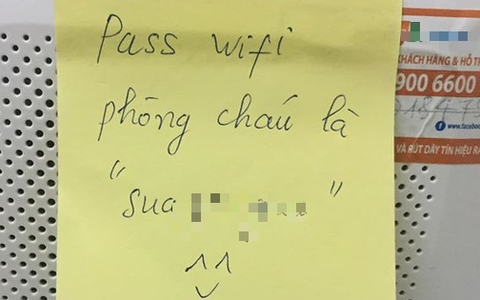 Pass wifi
phòng cháu là
"sua "
^^
KHÁCH HÀNG & HỖ TR
900 6600
www.facebo
VÀ RÚT DÂY TÍN HIỆU RA